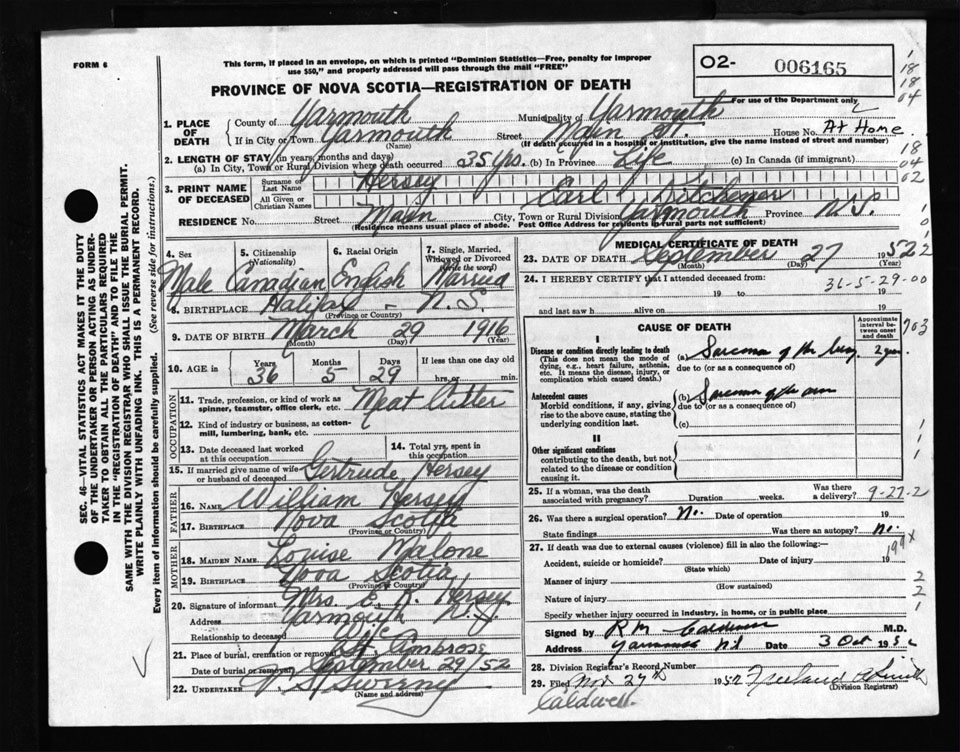 FORM 6
This form, if placed in an envelope, on which is printed "Dominion Statistics—Free, penalty for improper
use $50," and properly addressed will pass through the mail "FREE"
O2- 006165
For use of the Department only
PROVINCE OF NOVA SCOTIA—REGISTRATION OF DEATH
1. PLACE OF DEATH
County of Yarmouth Municipality of Yarmouth
If in City or Town Yarmouth (Name) Street Main St. House No. At Home.
(If death occurred in a hospital or institution, give the name instead of street and number)
2. LENGTH OF STAY (in years, months and days)
(a) In City, Town or Rural Division where death occurred 35 yrs. (b) In Province Life (c) In Canada (if immigrant)
3. PRINT NAME OF DECEASED
Surname or Last Name Hersey
All Given or Christian Names Earl Kitchener
RESIDENCE No. Street Main City, Town or Rural Division Yarmouth Province N.S.
(Residence means usual place of abode. Post Office Address for residents in rural parts not sufficient)
4. Sex Male
5. Citizenship (Nationality) Canadian
6. Racial Origin English
7. Single, Married, Widowed or Divorced (Write the word) Married
8. BIRTHPLACE Halifax - N.S.
(Province or Country)
9. DATE OF BIRTH March 29 1916
(Month) (Day) (Year)
10. AGE in Years 36 Months 5 Days 29 If less than one day old hrs. or min.
OCCUPATION
11. Trade, profession, or kind of work as spinner, teamster, office clerk, etc. Meat Cutter
12. Kind of industry or business, as cotton-mill, lumbering, bank, etc.
13. Date deceased last worked at this occupation
14. Total yrs. spent in this occupation
15. If married give name of wife or husband of deceased Gertrude Hersey
FATHER
16. NAME William Hersey
17. BIRTHPLACE Nova Scotia
(Province or Country)
MOTHER
18. MAIDEN NAME Louise Malone
19. BIRTHPLACE Nova Scotia
(Province or Country)
20. Signature of informant Mrs. E. K. Hersey
Address Yarmouth N.S.
Relationship to deceased Wife
21. Place of burial, cremation or removal St. Ambrose
Date of burial or removal September 29/52
22. UNDERTAKER V. S. Sweeny
(Name and address)
MEDICAL CERTIFICATE OF DEATH
23. DATE OF DEATH September 27 1952
(Month) (Day) (Year)
24. I HEREBY CERTIFY that I attended deceased from:
36-5-29-00
19 to 19
and last saw h alive on 19
CAUSE OF DEATH
Approximate interval between onset and death
I
Disease or condition directly leading to death
(This does not mean the mode of dying, e.g., heart failure, asthenia, etc. It means the disease, injury, or complication which caused death.)
(a) Sarcoma of the lung 2 years
due to (or as a consequence of)
Antecedent causes
Morbid conditions, if any, giving rise to the above cause, stating the underlying condition last.
(b) Sarcoma of the arm
due to (or as a consequence of)
(c)
II
Other significant conditions
contributing to the death, but not related to the disease or condition causing it.
25. If a woman, was the death associated with pregnancy? Duration weeks. Was there a delivery? 9-27-2
26. Was there a surgical operation? No. Date of operation 19
State findings Was there an autopsy? No.
27. If death was due to external causes (violence) fill in also the following:—
Accident, suicide or homicide? Date of injury 19
(State which)
Manner of injury
(How sustained)
Nature of injury
Specify whether injury occurred in industry, in home, or in public place
Signed by R M Caldwell M.D.
Address Yarmouth N.S Date 3 Oct 1952
28. Division Registrar's Record Number
29. Filed Nov 27th 1952
(Division Registrar)
Caldwell.
SEC. 46—VITAL STATISTICS ACT MAKES IT THE DUTY
OF THE UNDERTAKER OR PERSON ACTING AS UNDER-
TAKER TO OBTAIN ALL THE PARTICULARS REQUIRED
IN THE "REGISTRATION OF DEATH" AND TO FILE THE
SAME WITH THE DIVISION REGISTRAR WHO SHALL ISSUE THE BURIAL PERMIT.
WRITE PLAINLY WITH UNFADING INK. THIS IS A PERMANENT RECORD.
Every item of information should be carefully supplied. (See reverse side for instructions.)
1
18
18
04
18
04
02
1
0
1
22
703
1
1
1
199X
2
2
1